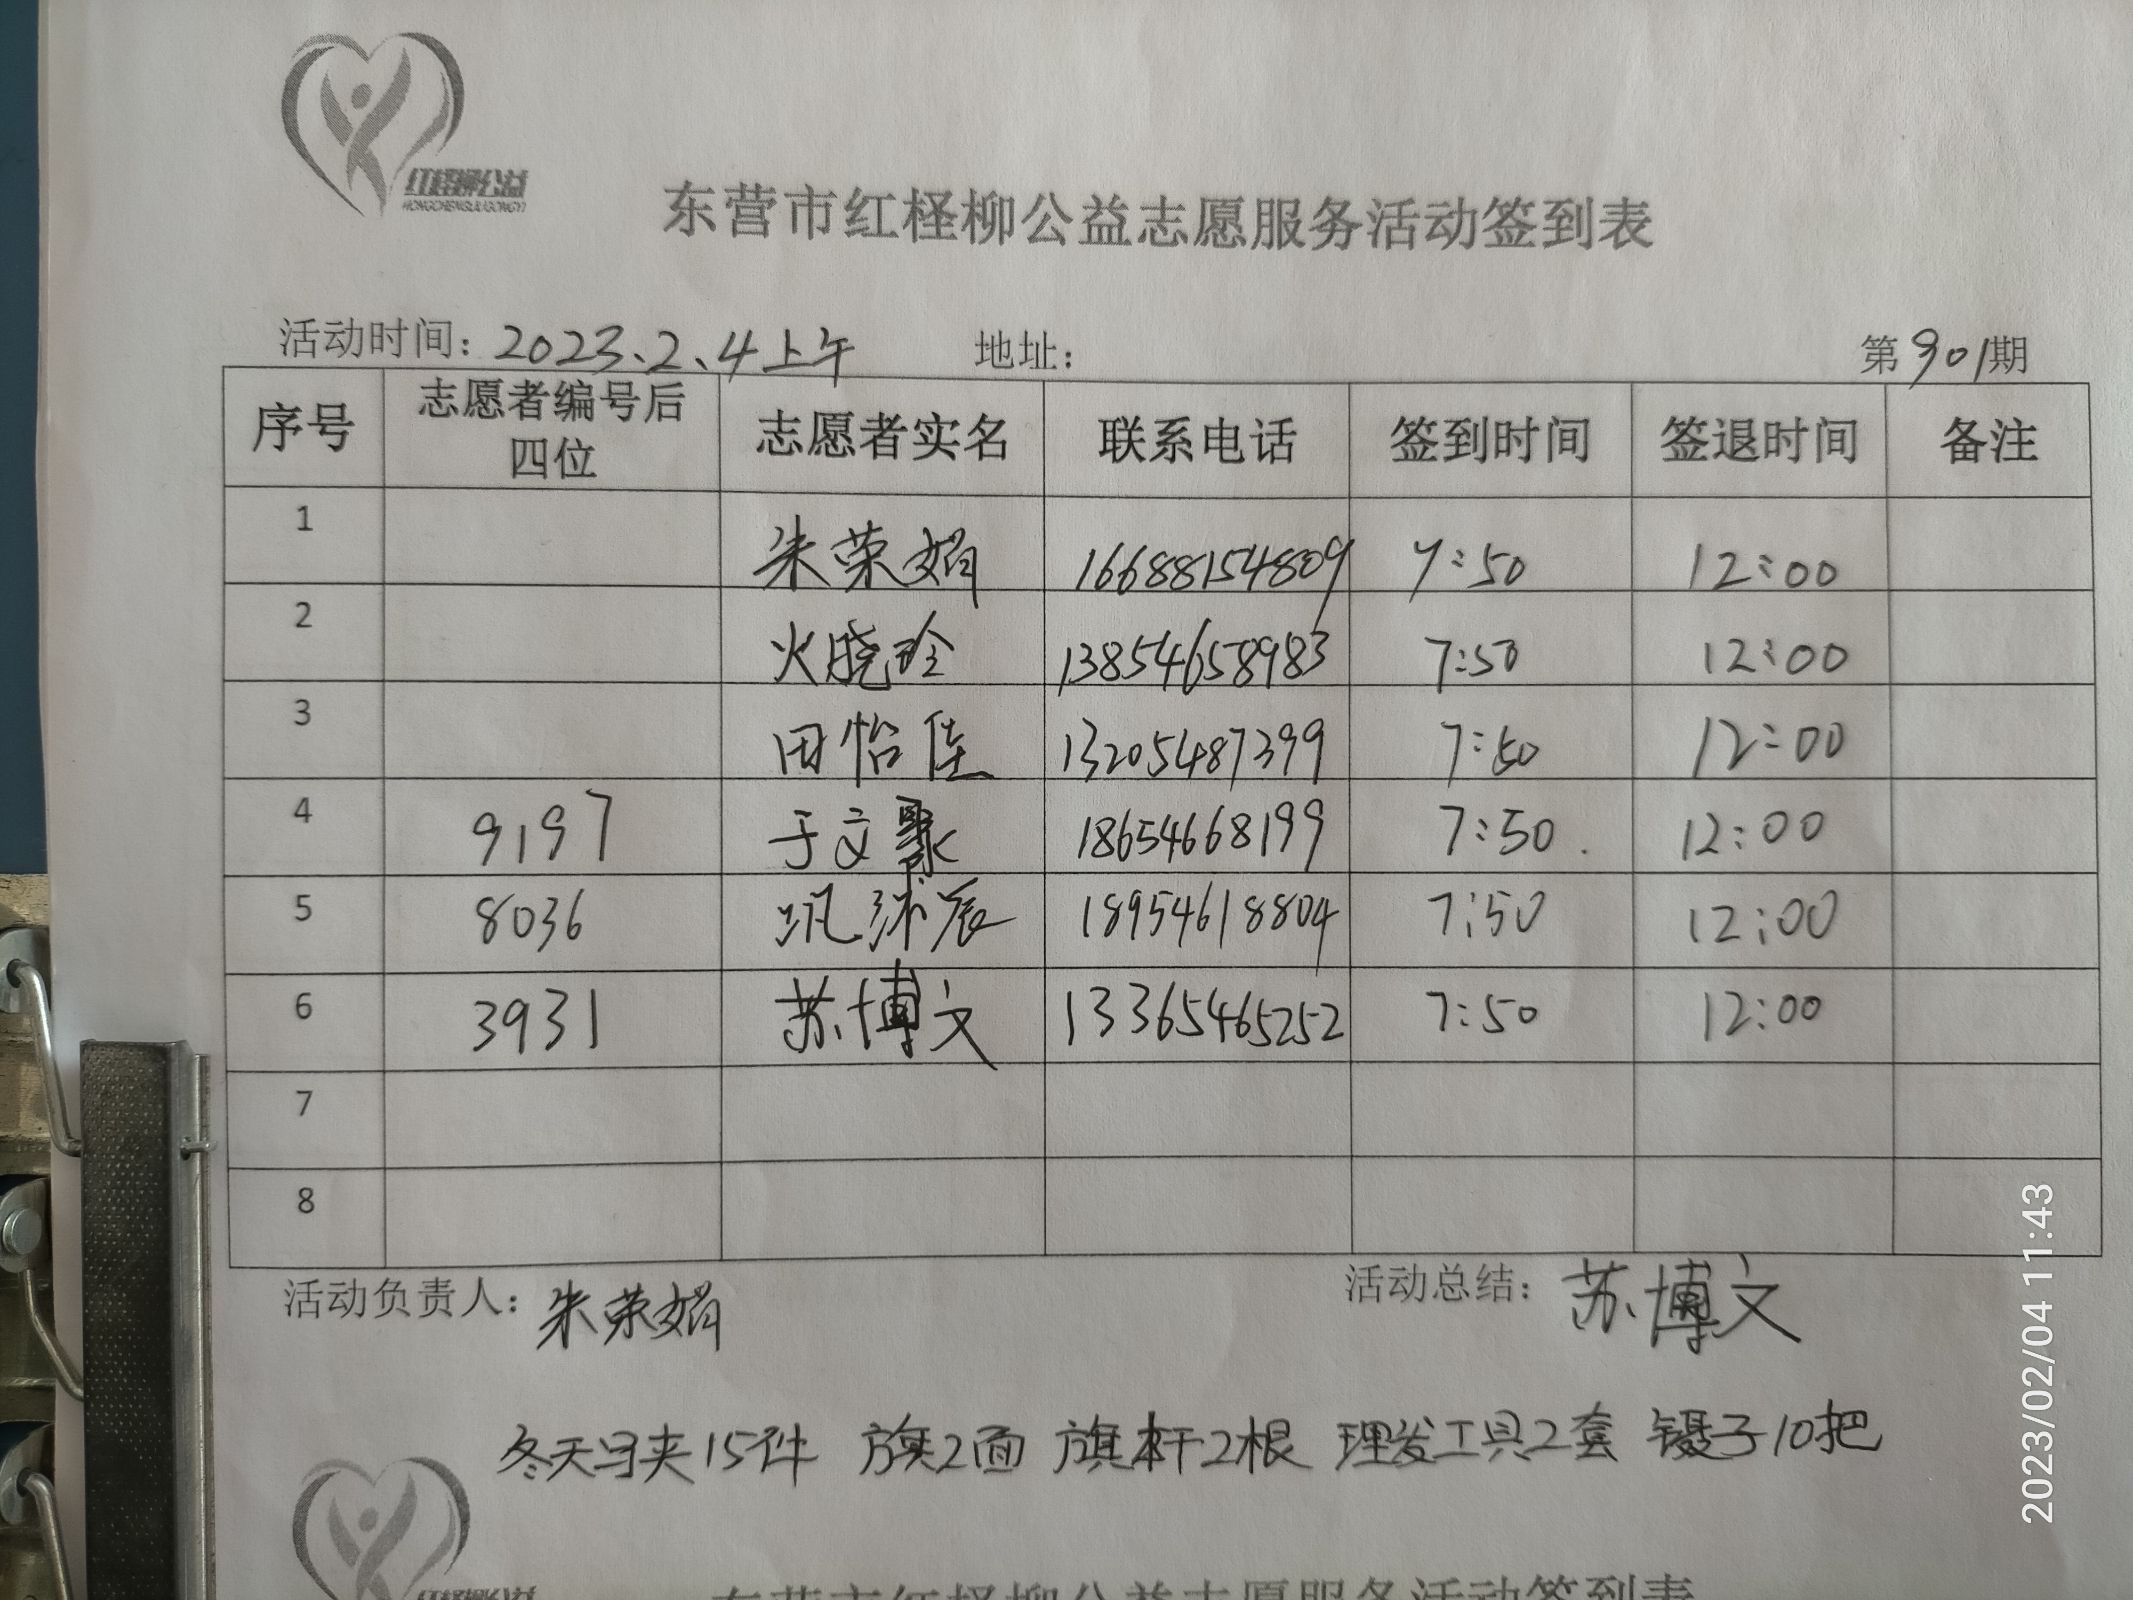 红柽柳公益
HONGCHENGLIUGONGYI
东营市红柽柳公益志愿服务活动签到表
活动时间：2023、2、4上午 地址： 第901期
序号 志愿者编号后四位 志愿者实名 联系电话 签到时间 签退时间 备注
1 朱荣娟 16688154809 7:50 12:00
2 火晓玲 13854658983 7:50 12:00
3 田怡佳 13205487399 7:50 12:00
4 9197 于文聚 18654668199 7:50 12:00
5 8036 巩辰 18954618804 7:50 12:00
6 3931 苏博文 13365465252 7:50 12:00
7
8
活动负责人：朱荣娟 活动总结：苏博文
冬天马夹15件 旗2面 旗杆2根 理发工具2套 镊子10把
东营市红柽柳公益志愿服务活动签到表
2023/02/04 11:43